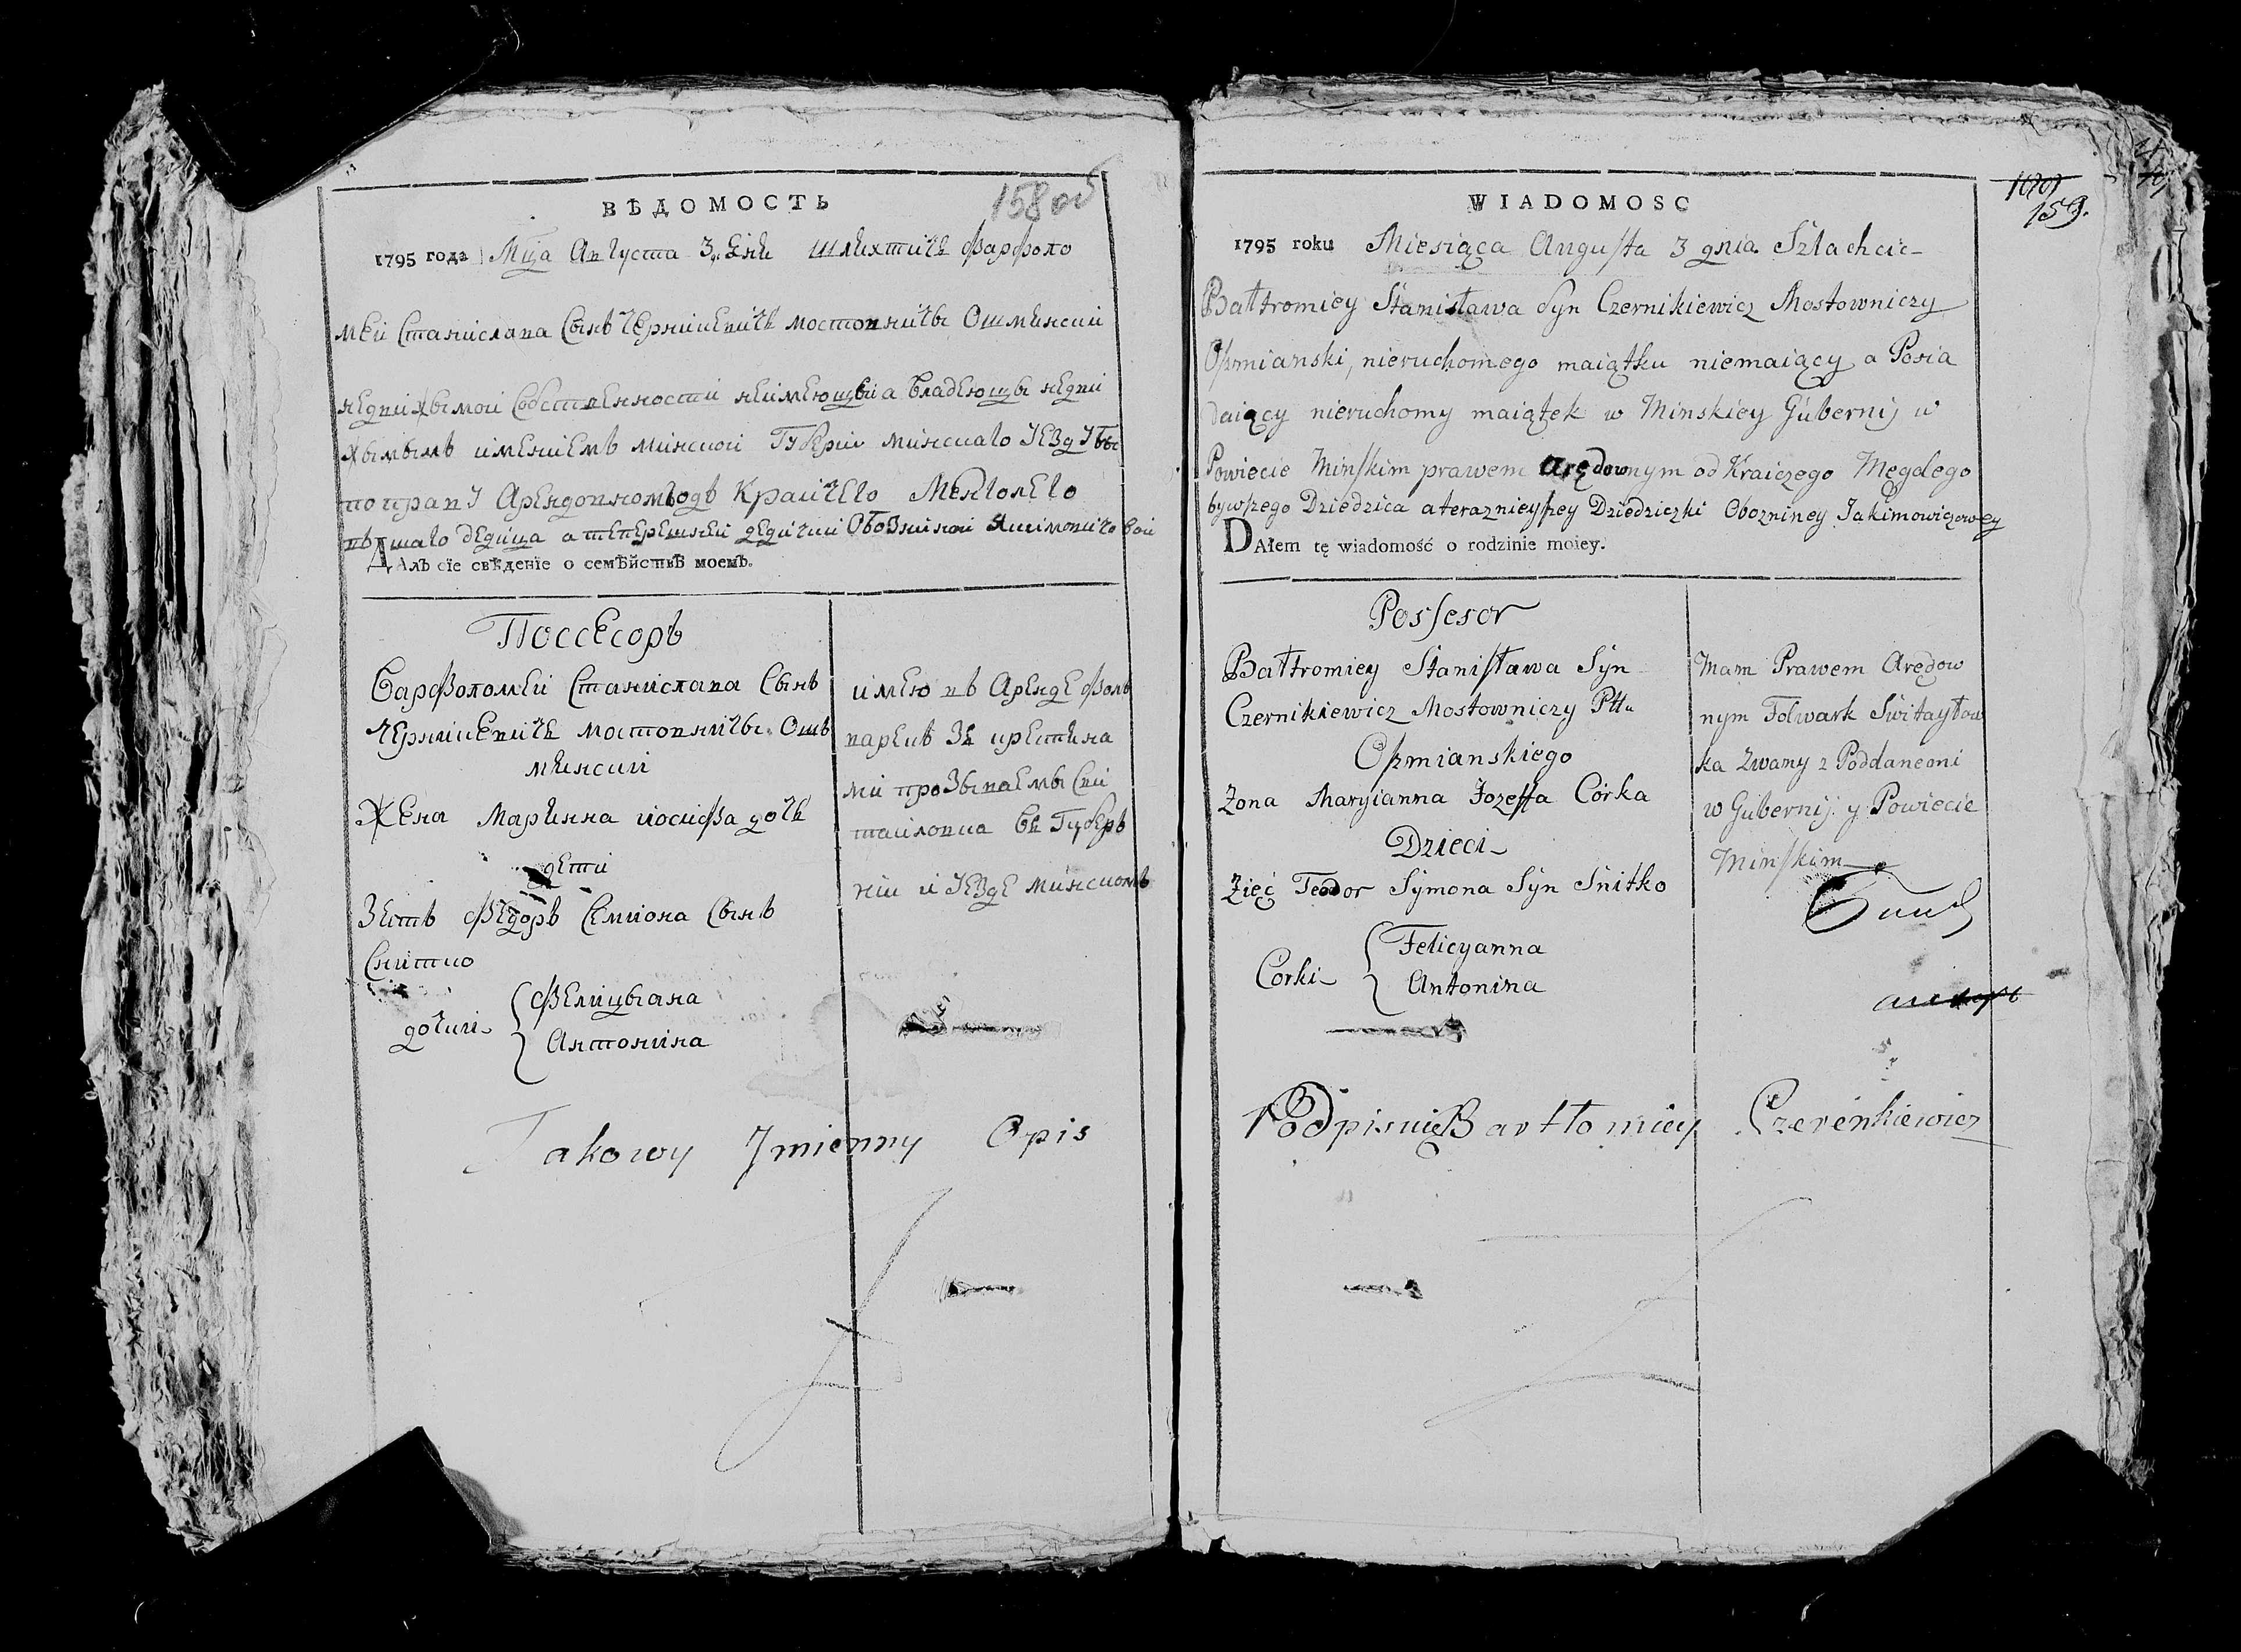 158 об
ВѢДОМОСТЬ
1795 года Мца Августа 3 дня шляхтичъ Варфоло
мей Станислава Сынъ Черникевичъ мостовничы Ошменскии
недвижымой Собственности неимеющыи а владеющы недви
жымымъ имениемъ минской Губернии минскаго Уезду
по праву Арендовномъ одъ Крайчего Менгдлего
бывшаго дедица а теперешней дедички Обозниной Якимовичовой
ДАлъ сїе свѣденїе о семѣйствѣ моемъ.
Поссесоръ
Варфоломей Станислава Сынъ
Черникевичъ мостовничы Ош
менский
Жена Марянна иосифа дочь
дети
Зять Федоръ Семиона Сынъ
Снитко
дочки { Фелицыана
Антонина
имею въ Аренде Фоль
варекъ Зъ крестяна
ми прозываемы Сви
тайловка въ Губер
нии и Уезде минскомъ
Takowy Jmienny Opis
159.
WIADOMOSC
1795 roku Miesiąca Augusta 3 dnia Szlachcic
Bałtromiey Stanisława Syn Czernikiewicz Mostowniczy
Oszmianski, nieruchomego maiątku niemaiący a Posia
daiący nieruchomy maiątek w Minskiey Gubernij w
Powiecie Minskim prawem Arędownym od Kraiczego
bywszego Dziedzica a teraznieyszey Dziedziczki Obozniney Jakimowiczowey
DAłem tę wiadomość o rodzinie moiey.
Possesor
Bałtromiey Stanisława Syn
Czernikiewicz Mostowniczy Pttu
Oszmianskiego
Zona Maryianna Jozeffa Córka
Dzieci
Zięć Teodor Symona Syn Snitko
Corki { Felicyanna
Antonina
Mam Prawem Arędow
nym Folwark Switayłow
ka Zwany z Poddanemi
w Gubernij y Powiecie
Minskim
Podpisuię Bartłomiey Czerenkiewicz